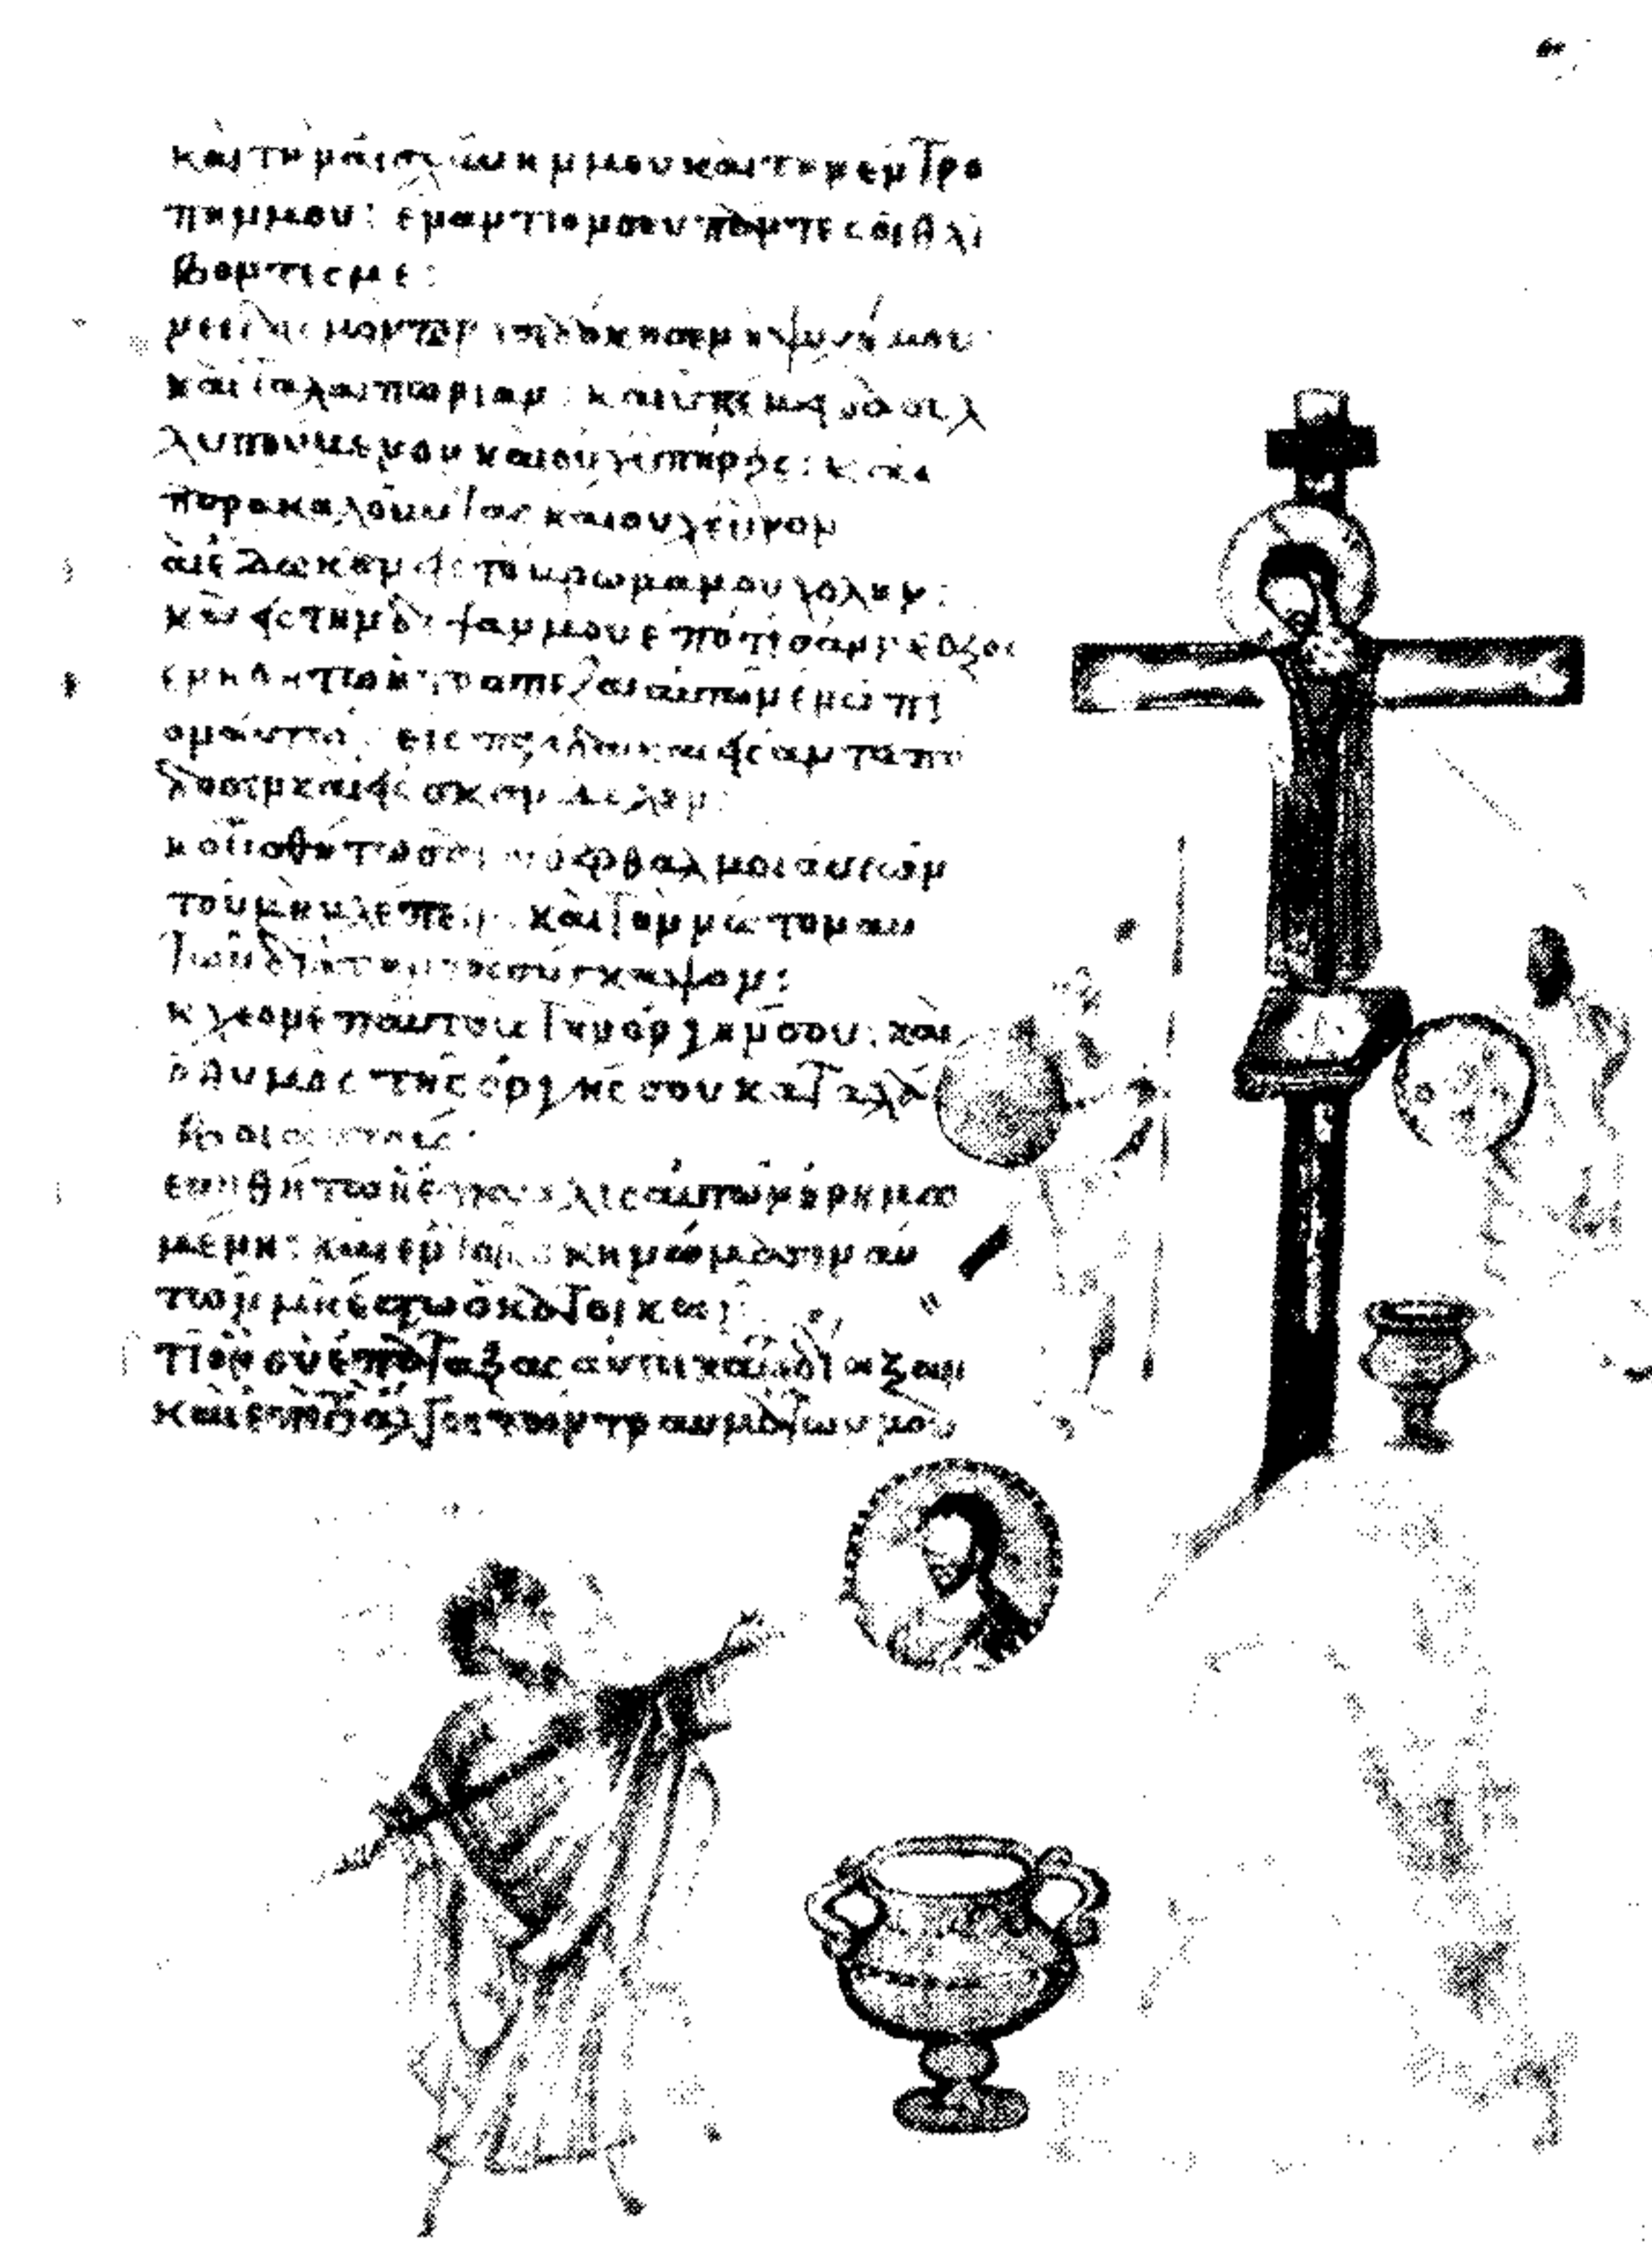 καὶ τὴν αἰσχύνην μου καὶ τὴν ἐντρο
πήν μου: ἐναντίον σου πάντες οἱ θλί
βοντές με:
καὶ ταλαιπωρίαν: καὶ ὑπέμεινα συλ
λυπούμενον καὶ οὐχ ὑπῆρξε: καὶ
παρακαλοῦντας καὶ οὐχ εὗρον
αὶ ἔδωκαν εἰς τὸ βρῶμά μου χολήν:
κ(αὶ) εἰς τὴν δίψαν μου ἐπότισάν με ὄξος
ενηθήτω ἡ τράπεζα αὐτῶν ἐνώπι
ον αὐτῶν: εἰς παγίδα καὶ εἰς ἀνταπό
δοσιν καὶ εἰς σκάνδαλον:
κοτισθήτωσαν οἱ ὀφθαλμοὶ αὐτῶν
τοῦ μὴ βλέπειν. καὶ τὸν νῶτον αὐ
τῶν διὰ παντὸς σύγκαμψον:
κχεον ἐπ' αὐτοὺς τὴν ὀργήν σου. καὶ
ὁ θυμὸς τῆς ὀργῆς σου καταλά
βοι αὐτούς:
ενηθήτω ἡ ἔπαυλις αὐτῶν ἠρημω
μένη: καὶ ἐν τοῖς σκηνώμασιν αὐ
τῶν μὴ ἔστω ὁ κατοικῶν:
τι ὃν σὺ ἐπάταξας αὐτοὶ κατεδίωξαν
καὶ ἐπὶ τὸ ἄλγος τῶν τραυμάτων μου